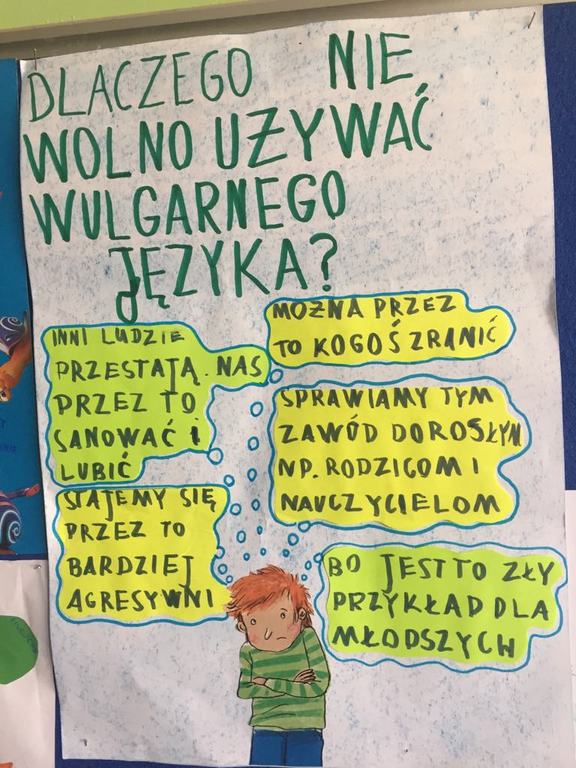 DLACZEGO NIE
WOLNO UŻYWAĆ
WULGARNEGO
JĘZYKA?
INNI LUDZIE
PRZESTAJĄ NAS
PRZEZ TO
SANOWAĆ I
LUBIĆ
MOŻNA PRZEZ
TO KOGOŚ ZRANIĆ
SPRAWIAMY TYM
ZAWÓD DOROSŁYM
NP. RODZICOM I
NAUCZYCIELOM
STAJEMY SIĘ
PRZEZ TO
BARDZIEJ
AGRESYWNI
BO JEST TO ZŁY
PRZYKŁAD DLA
MŁODSZYCH